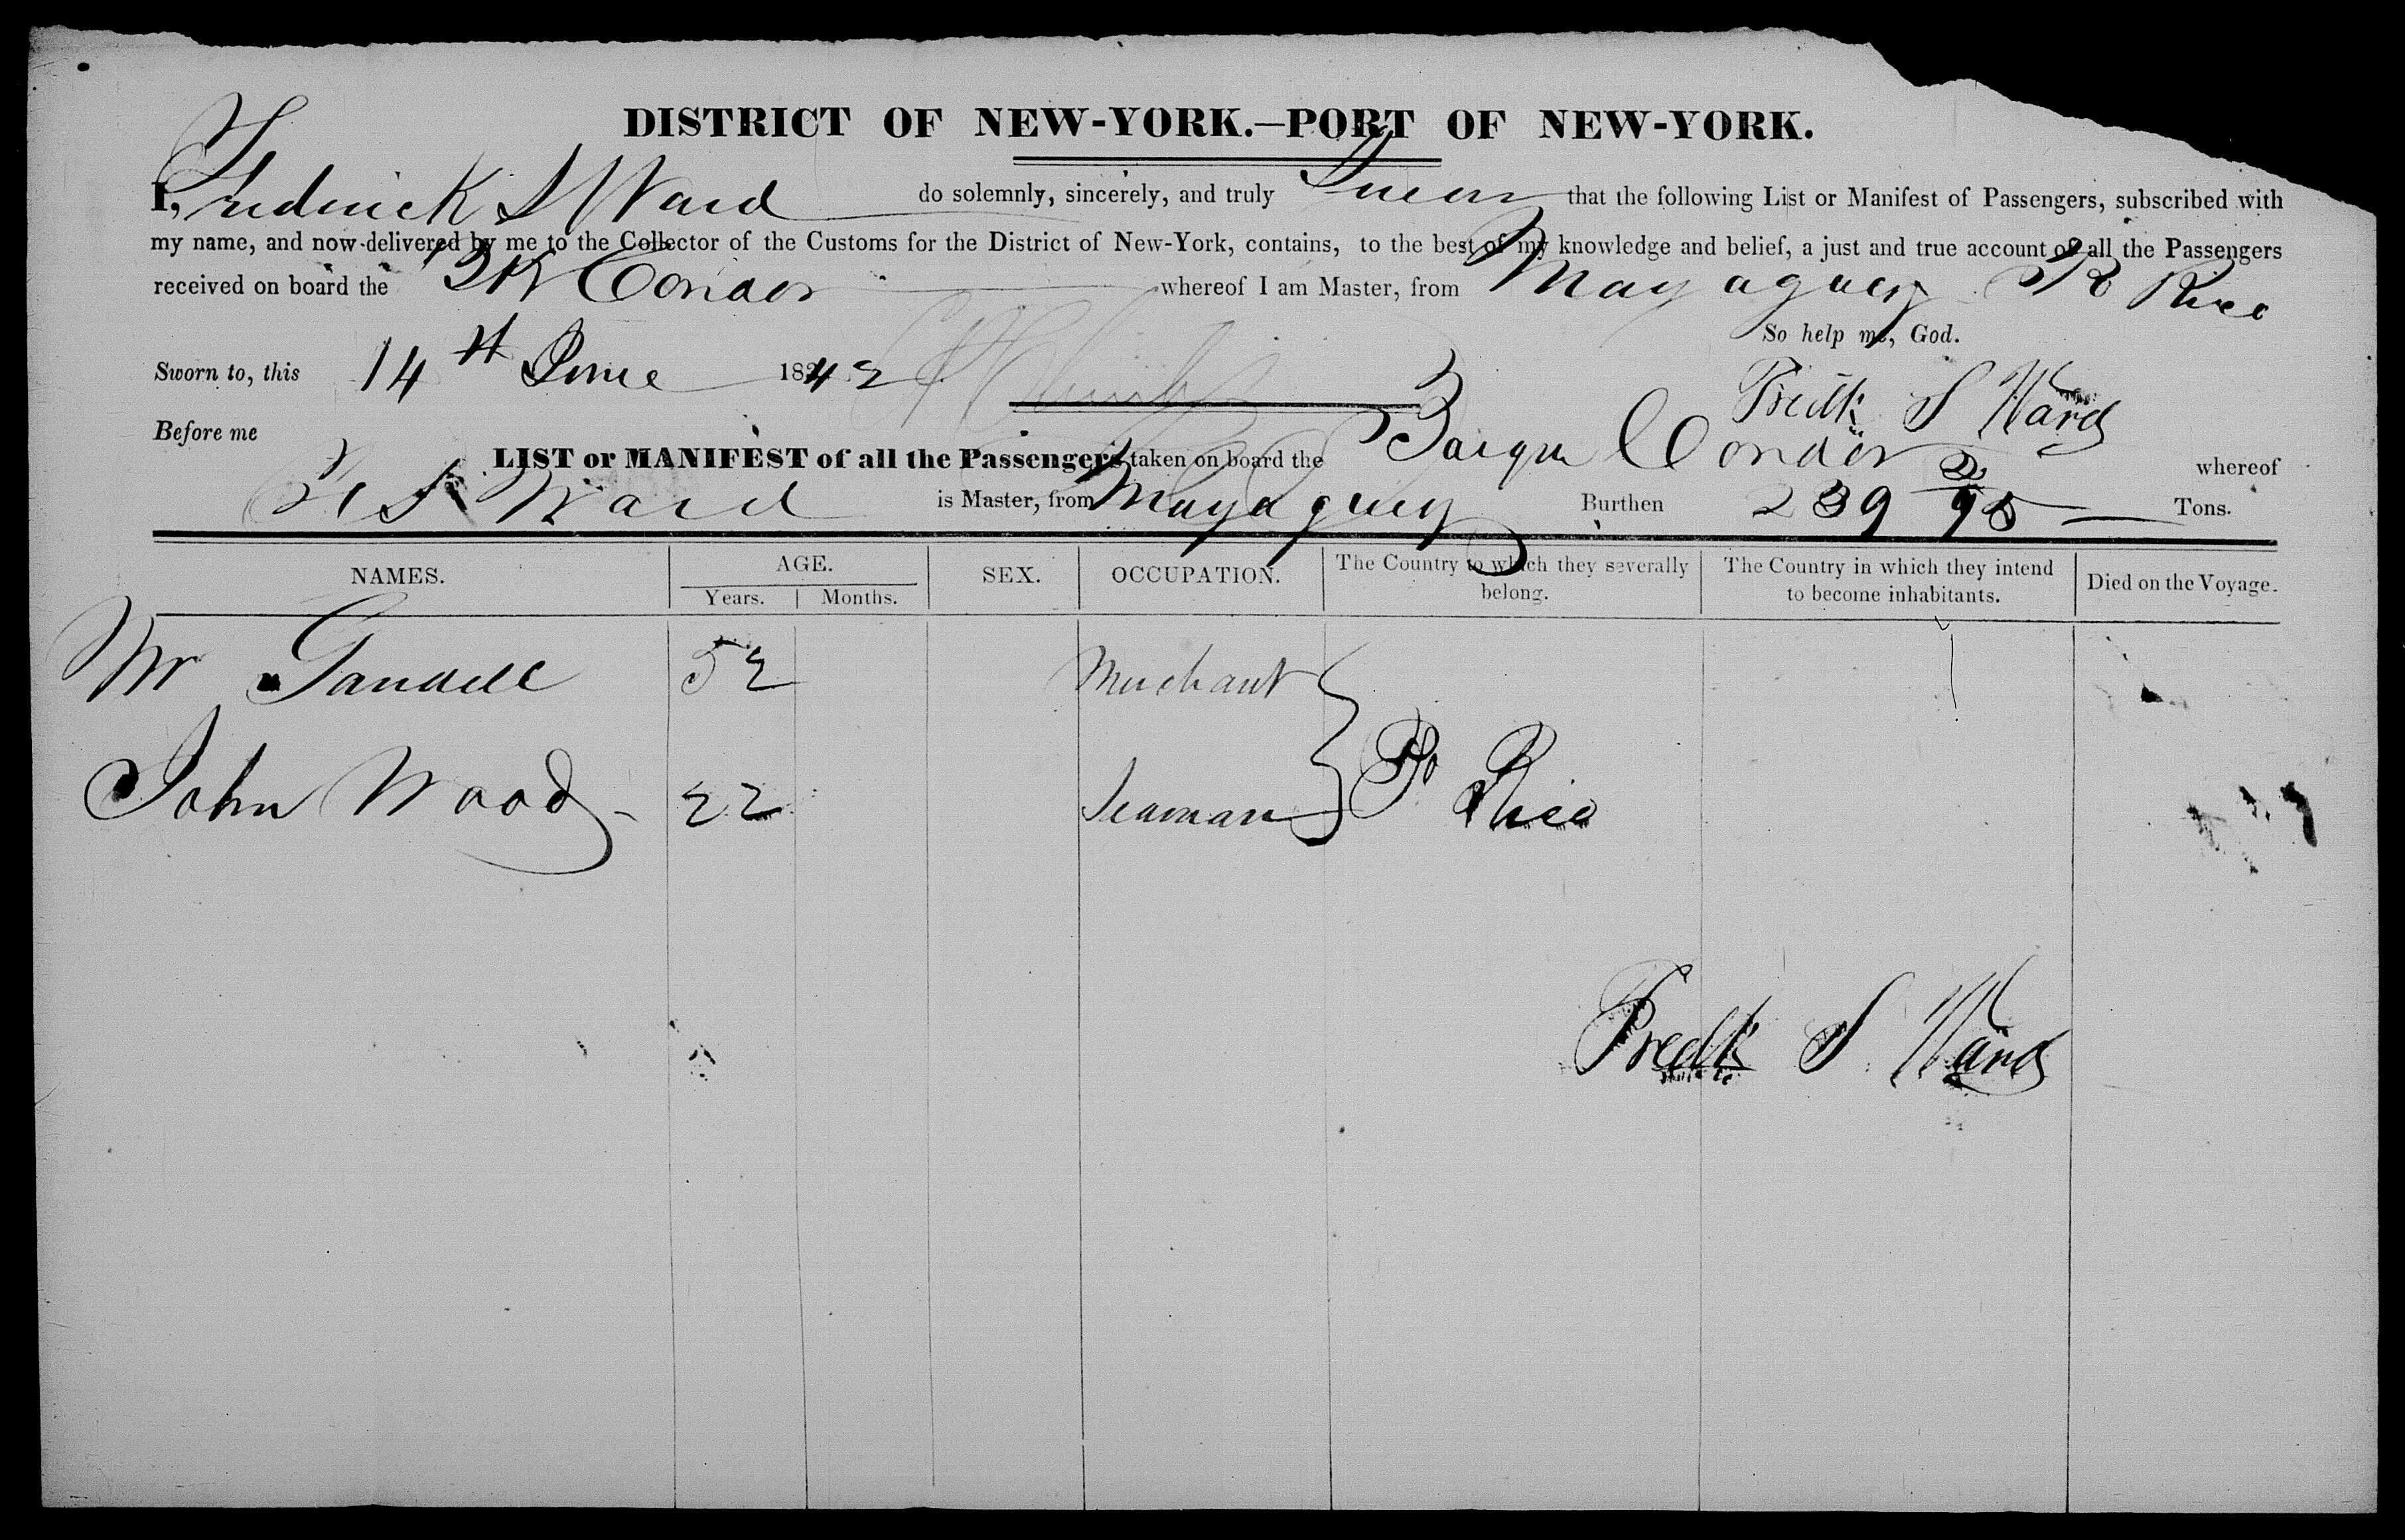 DISTRICT OF NEW-YORK.—PORT OF NEW-YORK.
I, Frederick S Ward do solemnly, sincerely, and truly Swear that the following List or Manifest of Passengers, subscribed with
my name, and now delivered by me to the Collector of the Customs for the District of New-York, contains, to the best of my knowledge and belief, a just and true account of all the Passengers
received on board the Bk Condor whereof I am Master, from Mayaguez Po Rico
So help me, God.
Sworn to, this 14th June 1842
Fredk S Ward
Before me
LIST or MANIFEST of all the Passengers taken on board the Barque Condor whereof
F S Ward is Master, from Mayaguez Burthen 239 95 Tons.
NAMES. AGE. SEX. OCCUPATION. The Country to which they severally belong. The Country in which they intend to become inhabitants. Died on the Voyage.
Years. Months.
Mr 52 Merchant
John Wood 22 Seaman Po Rico
Fredk S Ward